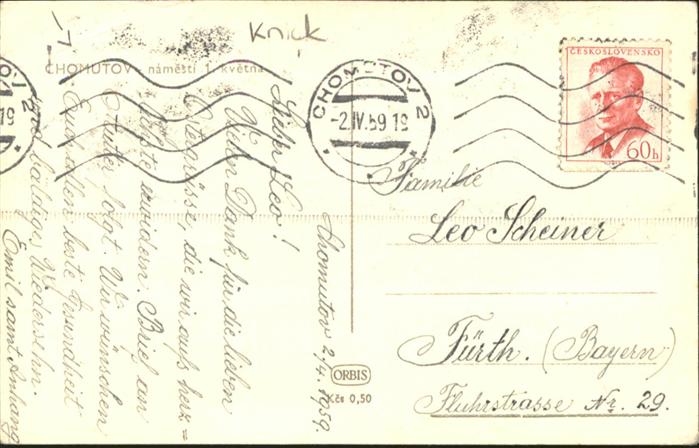 Knick
CHOMUTOV - náměstí 1. května
CHOMUTOV 2
-2.IV.59 19
OV 2
19
ČESKOSLOVENSKO
60h
Chomutov 2/4. 1959.
Lieber Leo!
Vielen Dank für die lieben
Ostergrüsse, die wir aufs herz=
lichste erwidern. Brief an
Mutter folgt. Wir wünschen
Euch allen beste Gesundheit
und baldiges Wiederseh'n.
Emil samt Anhang
Familie
Leo Scheiner
Fürth. (Bayern)
Fluhrstrasse Nr. 29.
ORBIS
Kčs 0,50